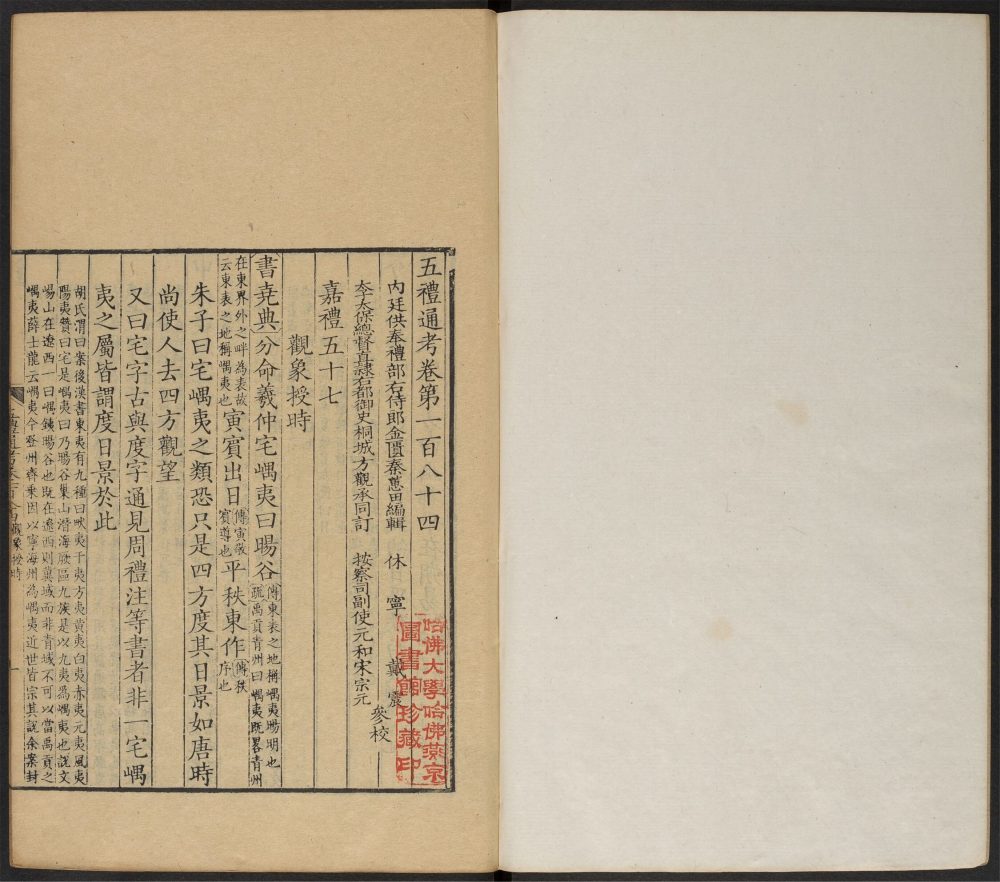 五禮通考卷第一百八十四
內廷供奉禮部右侍郎金匱秦蕙田編輯 休寧戴震
太子太保總督直隸右都御史桐城方觀承同訂 按察司副使元和宋宗元 參校
嘉禮五十七
觀象授時
書堯典分命羲仲宅嵎夷曰暘谷傳東表之地稱嵎夷暘明也疏禹貢青州曰嵎夷旣畧青州
在東界外之畔為表故云東表之地稱嵎夷也寅賓出日傳寅敬賓導也平秩東作傳秩序也
朱子曰宅嵎夷之類恐只是四方度其日景如唐時
尚使人去四方觀望
又曰宅字古與度字通見周禮注等書者非一宅嵎
夷之屬皆謂度日景於此
胡氏渭曰案後漢書東夷有九種曰畎夷于夷方夷黃夷白夷赤夷元夷風夷
陽夷贊曰宅是嵎夷曰乃暘谷巢山潛海厥區九族是以九夷為嵎夷也說文
崵山在遼西一曰嵎銕崵谷也旣在遼西則冀域而非青域不可以當禹貢之
嵎夷薛士龍云嵎夷今登州齊乗因以寧海州為嵎夷近世皆宗其說余案封
哈佛大學哈佛燕京
圖書館珍藏印